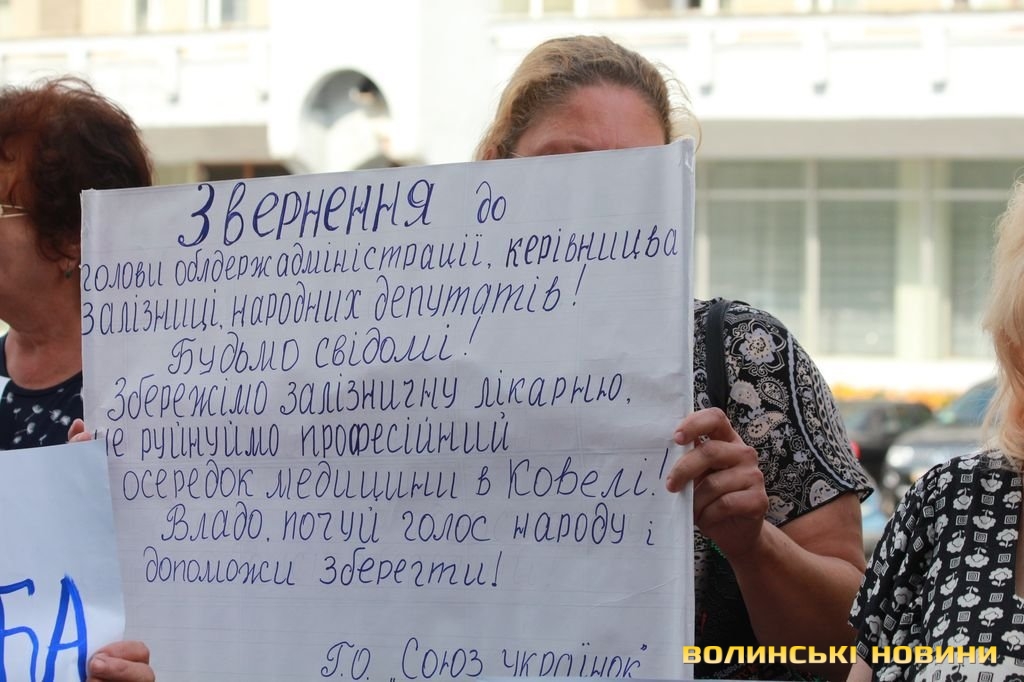 Звернення до
голови облдержадміністрації, керівницва
залізниці, народних депутатів!
Будьмо свідомі!
Збережімо залізничну лікарню,
не руйнуймо професійний
осередок медицини в Ковелі!
Владо, почуй голос народу і
допоможи зберегти!
Г.О. "Союз українок"
БА
ВОЛИНСЬКІ НОВИНИ